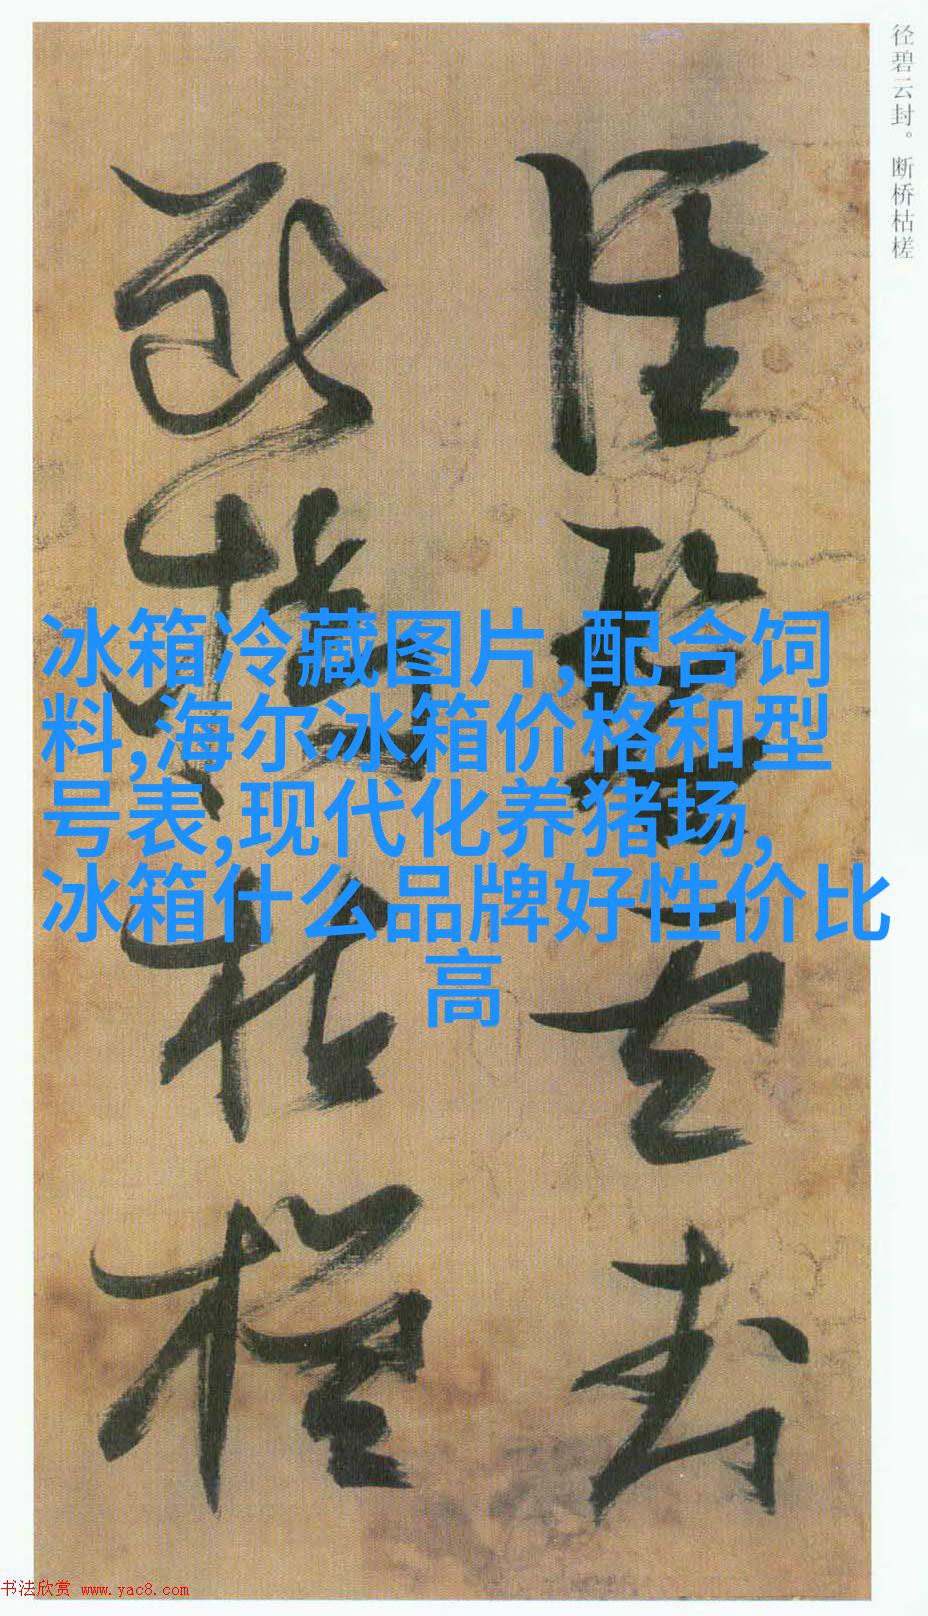 径碧云封。断桥枯槎
径碧云封
断桥枯槎
冰箱冷藏图片,配合饲
料,海尔冰箱价格和型
号表,现代化养猪场,
冰箱什么品牌好性价比
高
书法欣赏 www.yac8.com